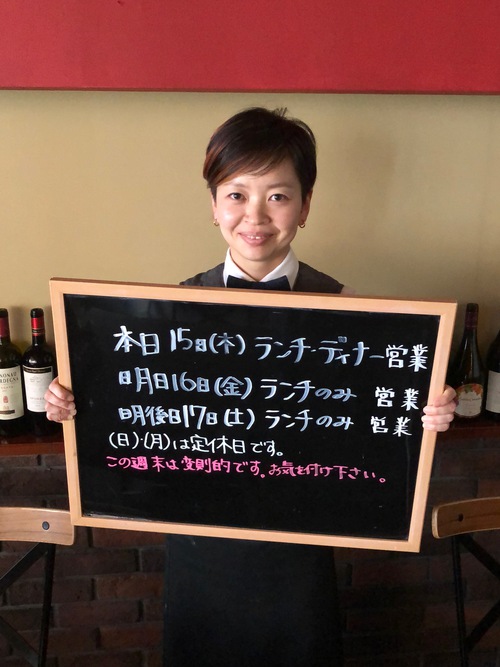 本日15日(木)ランチ・ディナー営業
明日16日(金)ランチのみ 営業
明後日17日(土)ランチのみ 営業
(日)・(月)は定休日です。
この週末は変則的です。お気を付け下さい。